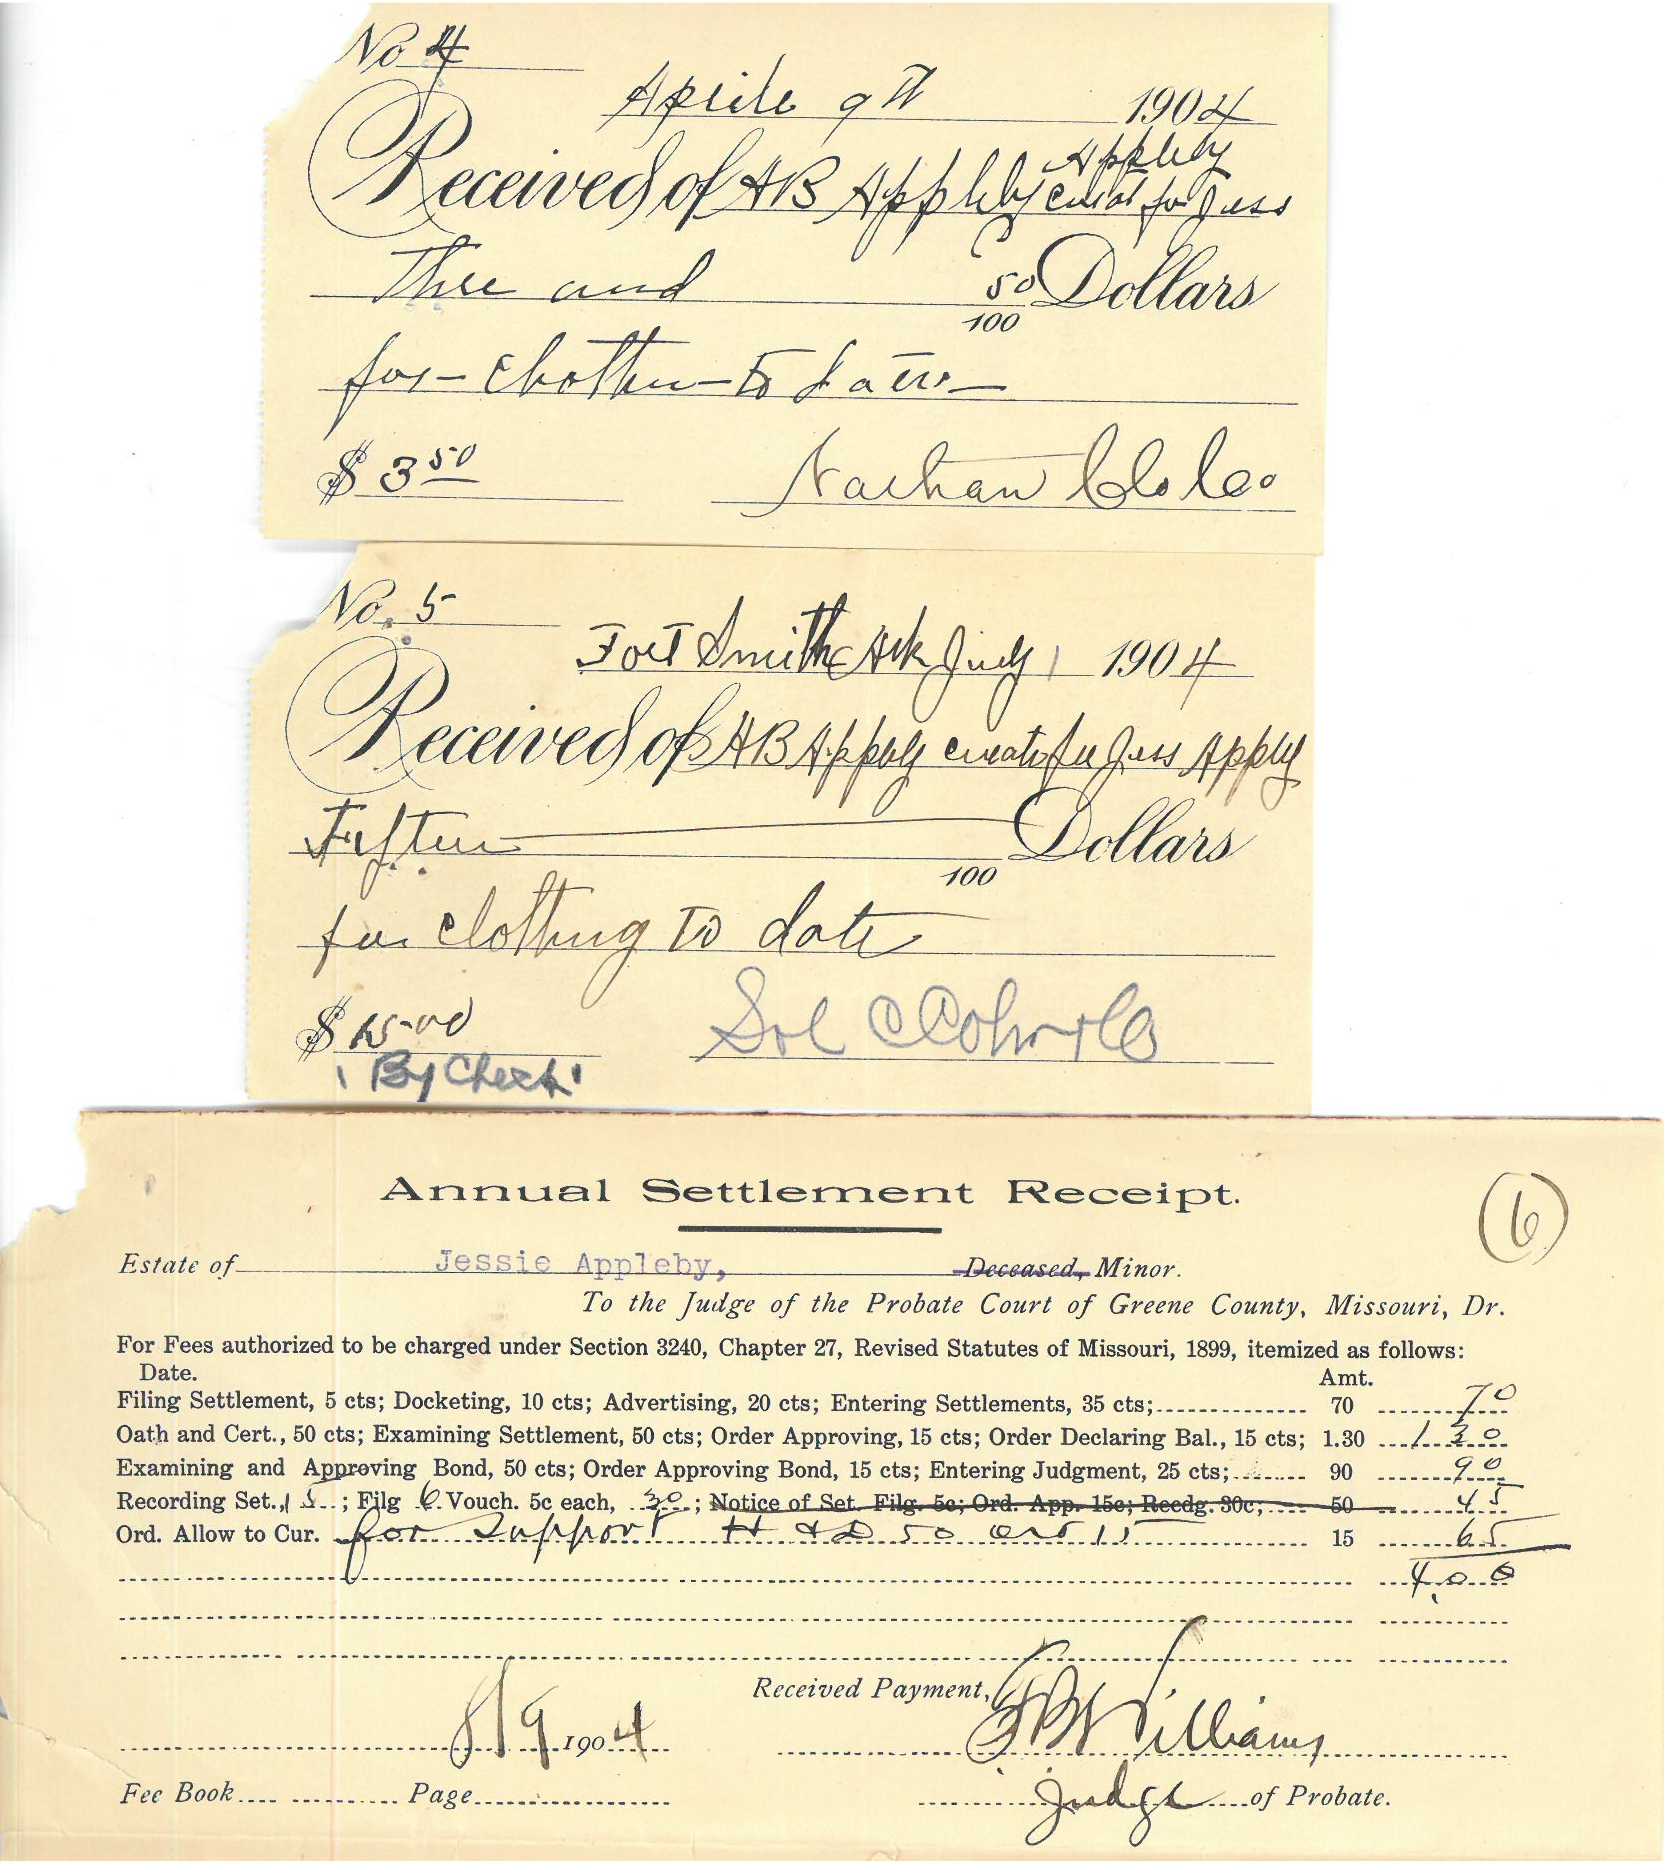 No 4
Aprile 9th 1904
Appleby
Received of HB Appleby curat for Jess
Three and 50/100 Dollars
for to date
$ 3 50
Nathan Clo Co
No. 5
Fort Smith Ark July 1 1904
Received of HB Appleby curator for Jess Apply
Fifteen /100 Dollars
for clothing to date
$ 15.00
By Check
Sol C Cohn & Co
Annual Settlement Receipt.
6
Estate of Jessie Appleby, Deceased, Minor.
To the Judge of the Probate Court of Greene County, Missouri, Dr.
For Fees authorized to be charged under Section 3240, Chapter 27, Revised Statutes of Missouri, 1899, itemized as follows:
Date. Amt.
Filing Settlement, 5 cts; Docketing, 10 cts; Advertising, 20 cts; Entering Settlements, 35 cts; 70 70
Oath and Cert., 50 cts; Examining Settlement, 50 cts; Order Approving, 15 cts; Order Declaring Bal., 15 cts; 1.30 1 30
Examining and Approving Bond, 50 cts; Order Approving Bond, 15 cts; Entering Judgment, 25 cts; 90 90
Recording Set., 15 ; Filg 6 Vouch. 5c each, 30 ; Notice of Set. Filg. 5c; Ord. App. 15c; Recdg. 30c; 50 45
Ord. Allow to Cur. for support H & D 50 ord 15 15 65
4.00
Received Payment,
8/9 1904 Williams
Fee Book Page Judge of Probate.